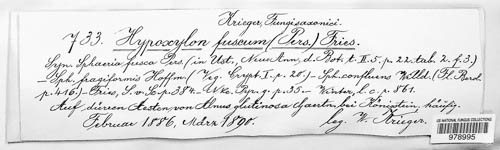 Krieger, Fungi saxonici.
733. Hypoxylon fuscum (Pers.) Fries.
Syn. Sphaeria fusca Pers. (in Ust., Neue Ann. d. Bot. St. II. S. p. 22. tab. 2. f. 3.)
– Sph. fragiformis Hoffm. (Veg. Crypt. I. p. 20.) – Sph. confluens Willd. (Fl. Berol.
p. 416.) – Fries, S. v. S. p. 384. – Nke. Pyr. g. p. 33. – Winter, l. c. p. 861.
Auf dürren Aesten von Alnus glutinosa Gaertn. bei Königstein, häufig.
Februar 1886, März 1890. leg. W. Krieger.
US NATIONAL FUNGUS COLLECTIONS
978995